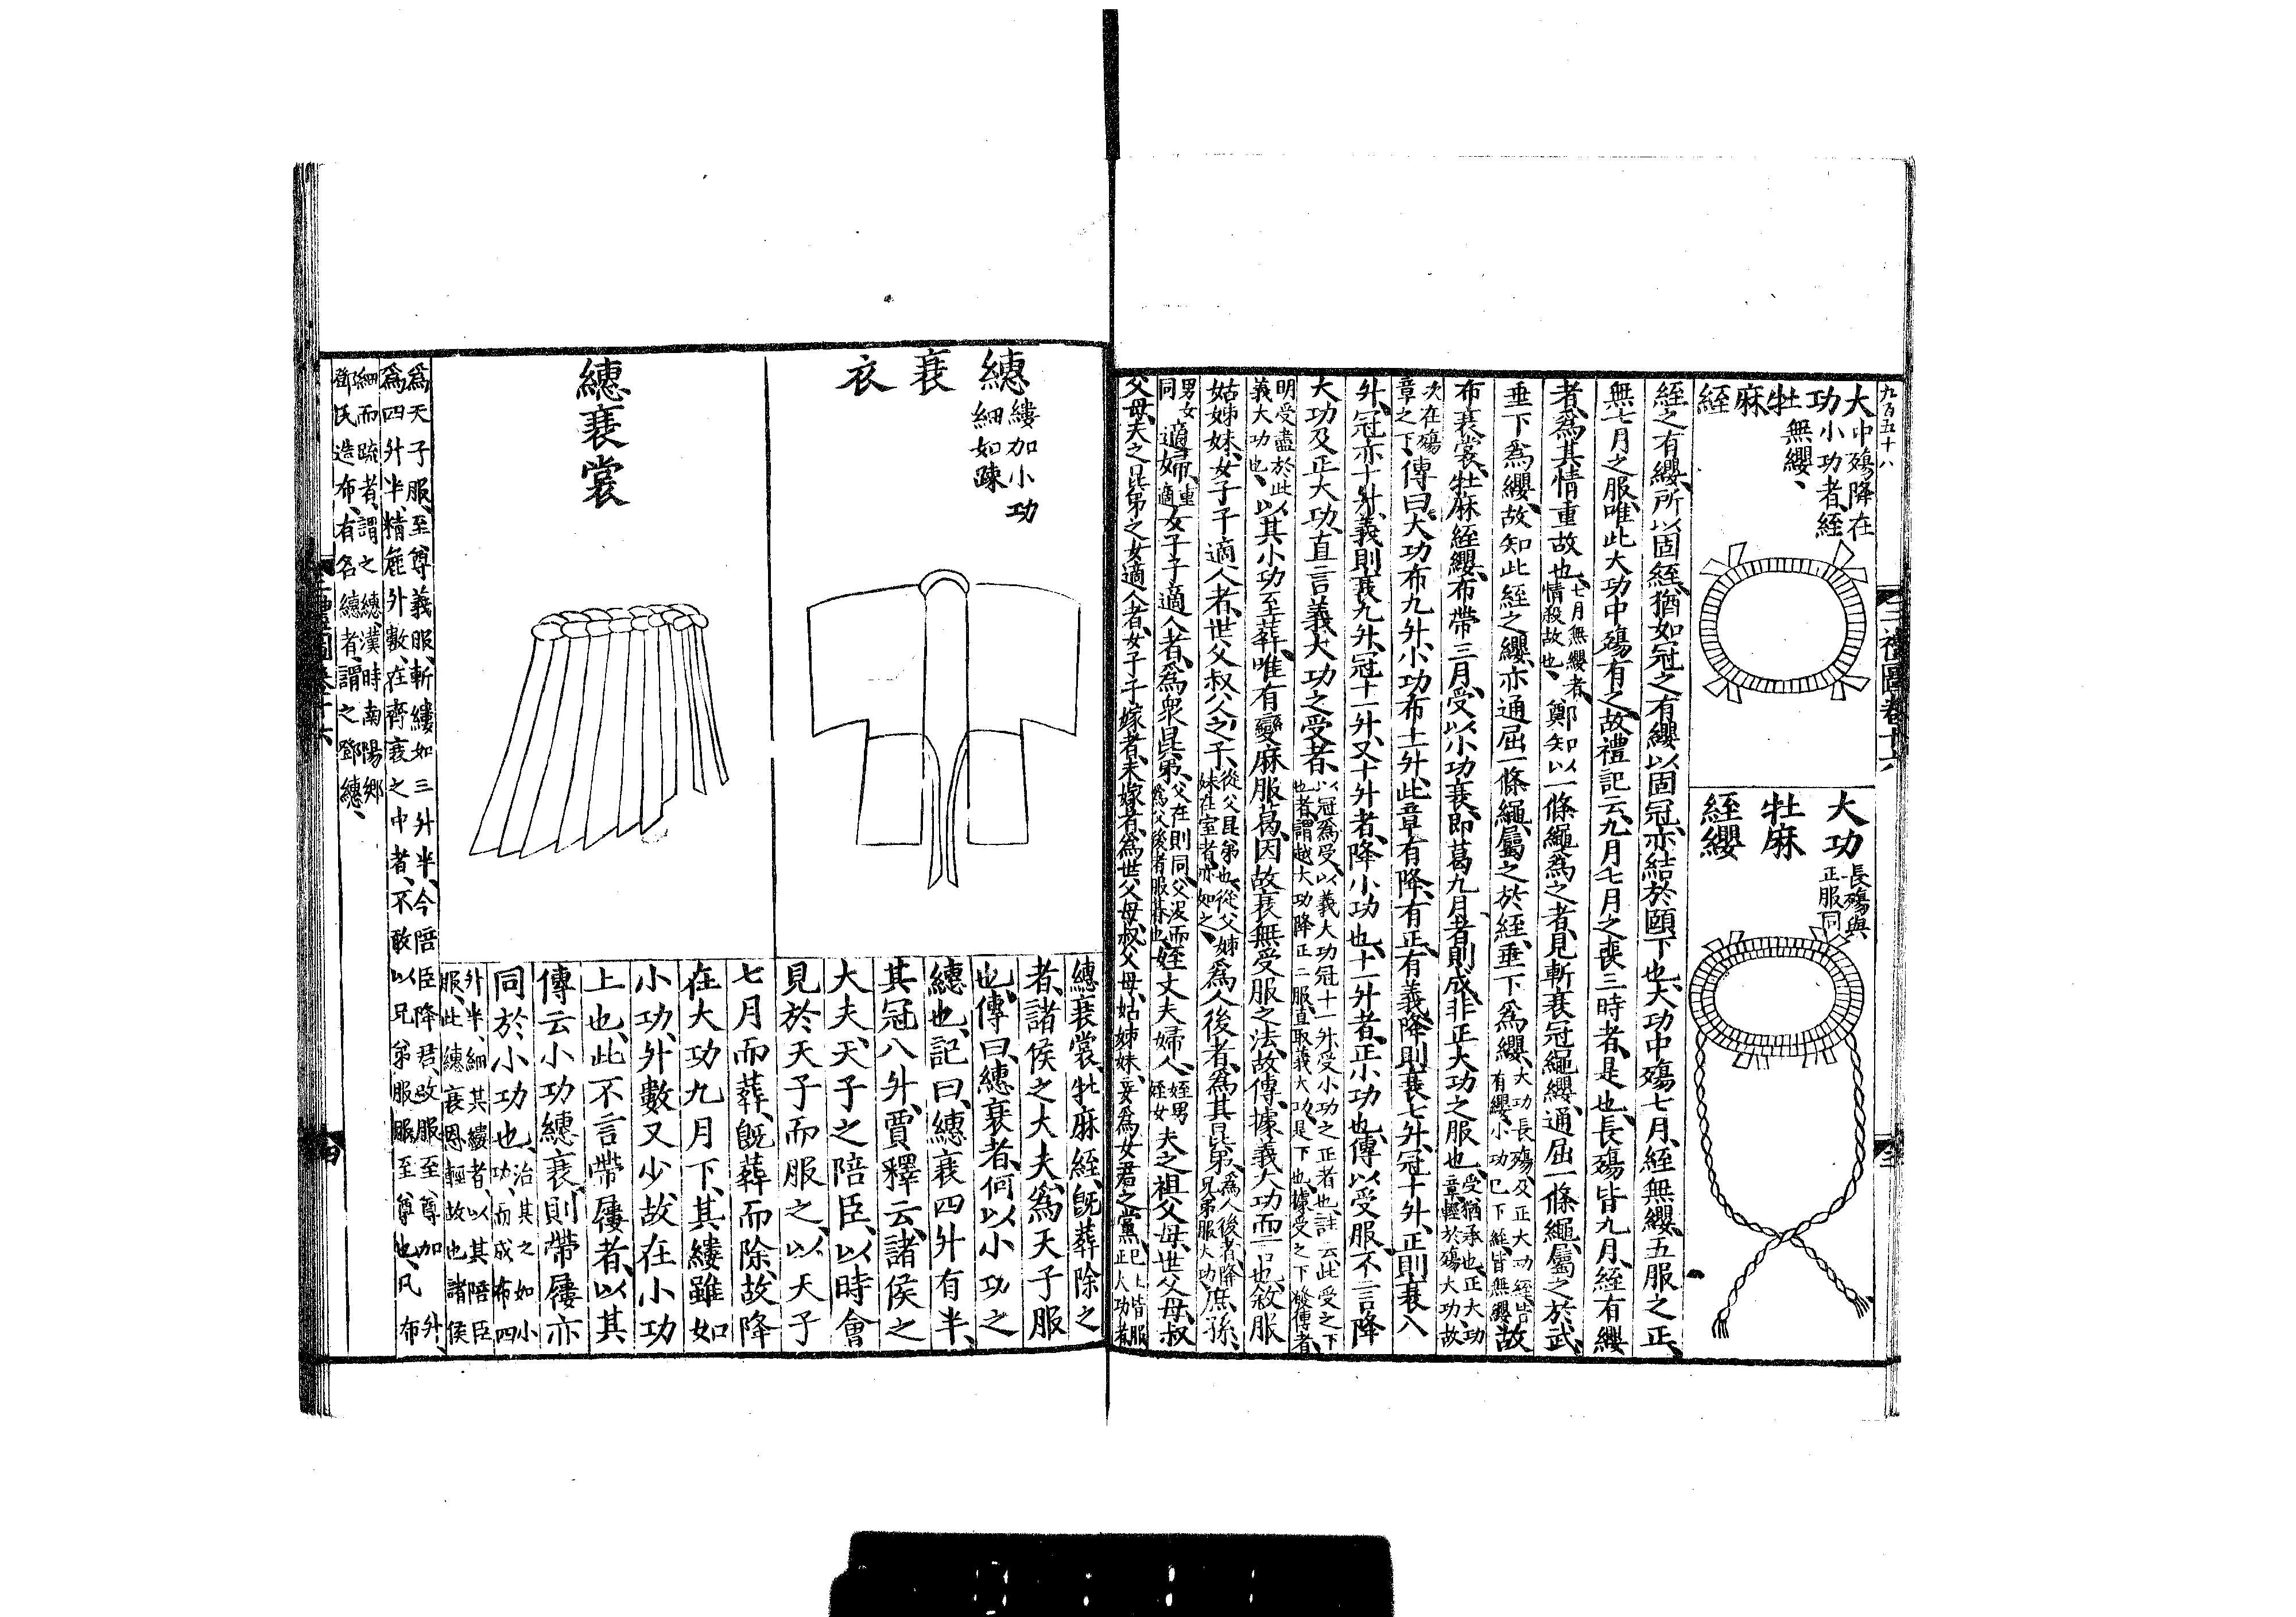 九百五十八
三禮圖卷十六
大功牡麻絰
中殤降在
小功者、絰
無纓、
大功
牡麻
絰纓
長殤與
正服同
絰之有纓、所以固絰、猶如冠之有纓、以固冠、亦結於頤下也、大功中殤七月、絰無纓、五服之正、
無七月之服、唯此大功中殤有之、故禮記云、九月七月之喪三時者、是也、長殤皆九月、絰有纓
者、爲其情重故也、七月無纓者、情殺故也、鄭知以一條繩爲之者、見斬衰冠繩纓、通屈一條繩、屬之於武、
垂下爲纓、故知此絰之纓、亦通屈一條繩、屬之於絰、垂下爲纓、大功長殤及正大功絰皆有纓、小功已下絰皆無纓、故
布衰裳、牡麻絰纓、布帶三月、受以小功衰、即葛九月者、則成非正大功之服也、受猶承也、正大功章輕於殤大功、故
次在殤章之下、傳曰大功布九升、小功布十一升、此章有降、有正、有義、降則衰七升、冠十升、正則衰八
升、冠亦十升、義則衰九升、冠十一升、又十升者、降小功也、十一升者、正小功也、傳以受服、不言降
大功及正大功、直言義大功之受者、以冠爲受、以義大功冠十一升、受小功之正者也、註云此受之下也者、謂越大功降正二服、直取義大功、是下也、據受之下發傳者、
明受盡於此義大功也、以其小功至葬、唯有變麻服葛、因故衰無受服之法、故傳據義大功而言也、敘服
姑姊妹、女子子適人者、世父叔父之子、從父昆弟也、從父姊妹在室者亦如之、爲人後者、爲其昆弟、爲人後者、降兄弟服大功、庶孫、
男女同、適婦、重適、女子子適人者、爲衆昆弟、父在則同、父沒而爲父後者服朞也、姪丈夫婦人、姪男姪女、夫之祖父母、世父母、叔
父母、夫之昆弟之女適人者、女子子嫁者、未嫁者、爲世父母、叔父母、姑姊妹、妾爲女君之黨、已上皆服正大功者
繐衰衣
縷加小功
細如疎
繐衰裳
繐衰裳、牡麻絰、旣葬除之
者、諸侯之大夫、爲天子服
也、傳曰、繐衰者、何以小功之
繐也、記曰、繐衰四升有半、
其冠八升、賈釋云、諸侯之
大夫、天子之陪臣、以時會
見於天子而服之、以天子
七月而葬、旣葬而除、故降
在大功九月下、其縷雖如
小功、升數又少、故在小功
上也、此不言帶屨者、以其
傳云小功繐衰、則帶屨亦
同於小功也、治其之如小功、而成布四
升半、細其縷者、以其陪臣服、此繐衰恩輕故也、諸侯
爲天子服、至尊義服、斬縷如三升半、今陪臣降君、改服至尊、加升、
爲四升半、精麤升數、在齊衰之中者、不敢以兄弟服服至尊也、凡布
細而疏者、謂之繐、漢時南陽鄉
鄧氏造布、有名繐者、謂之鄧繐、